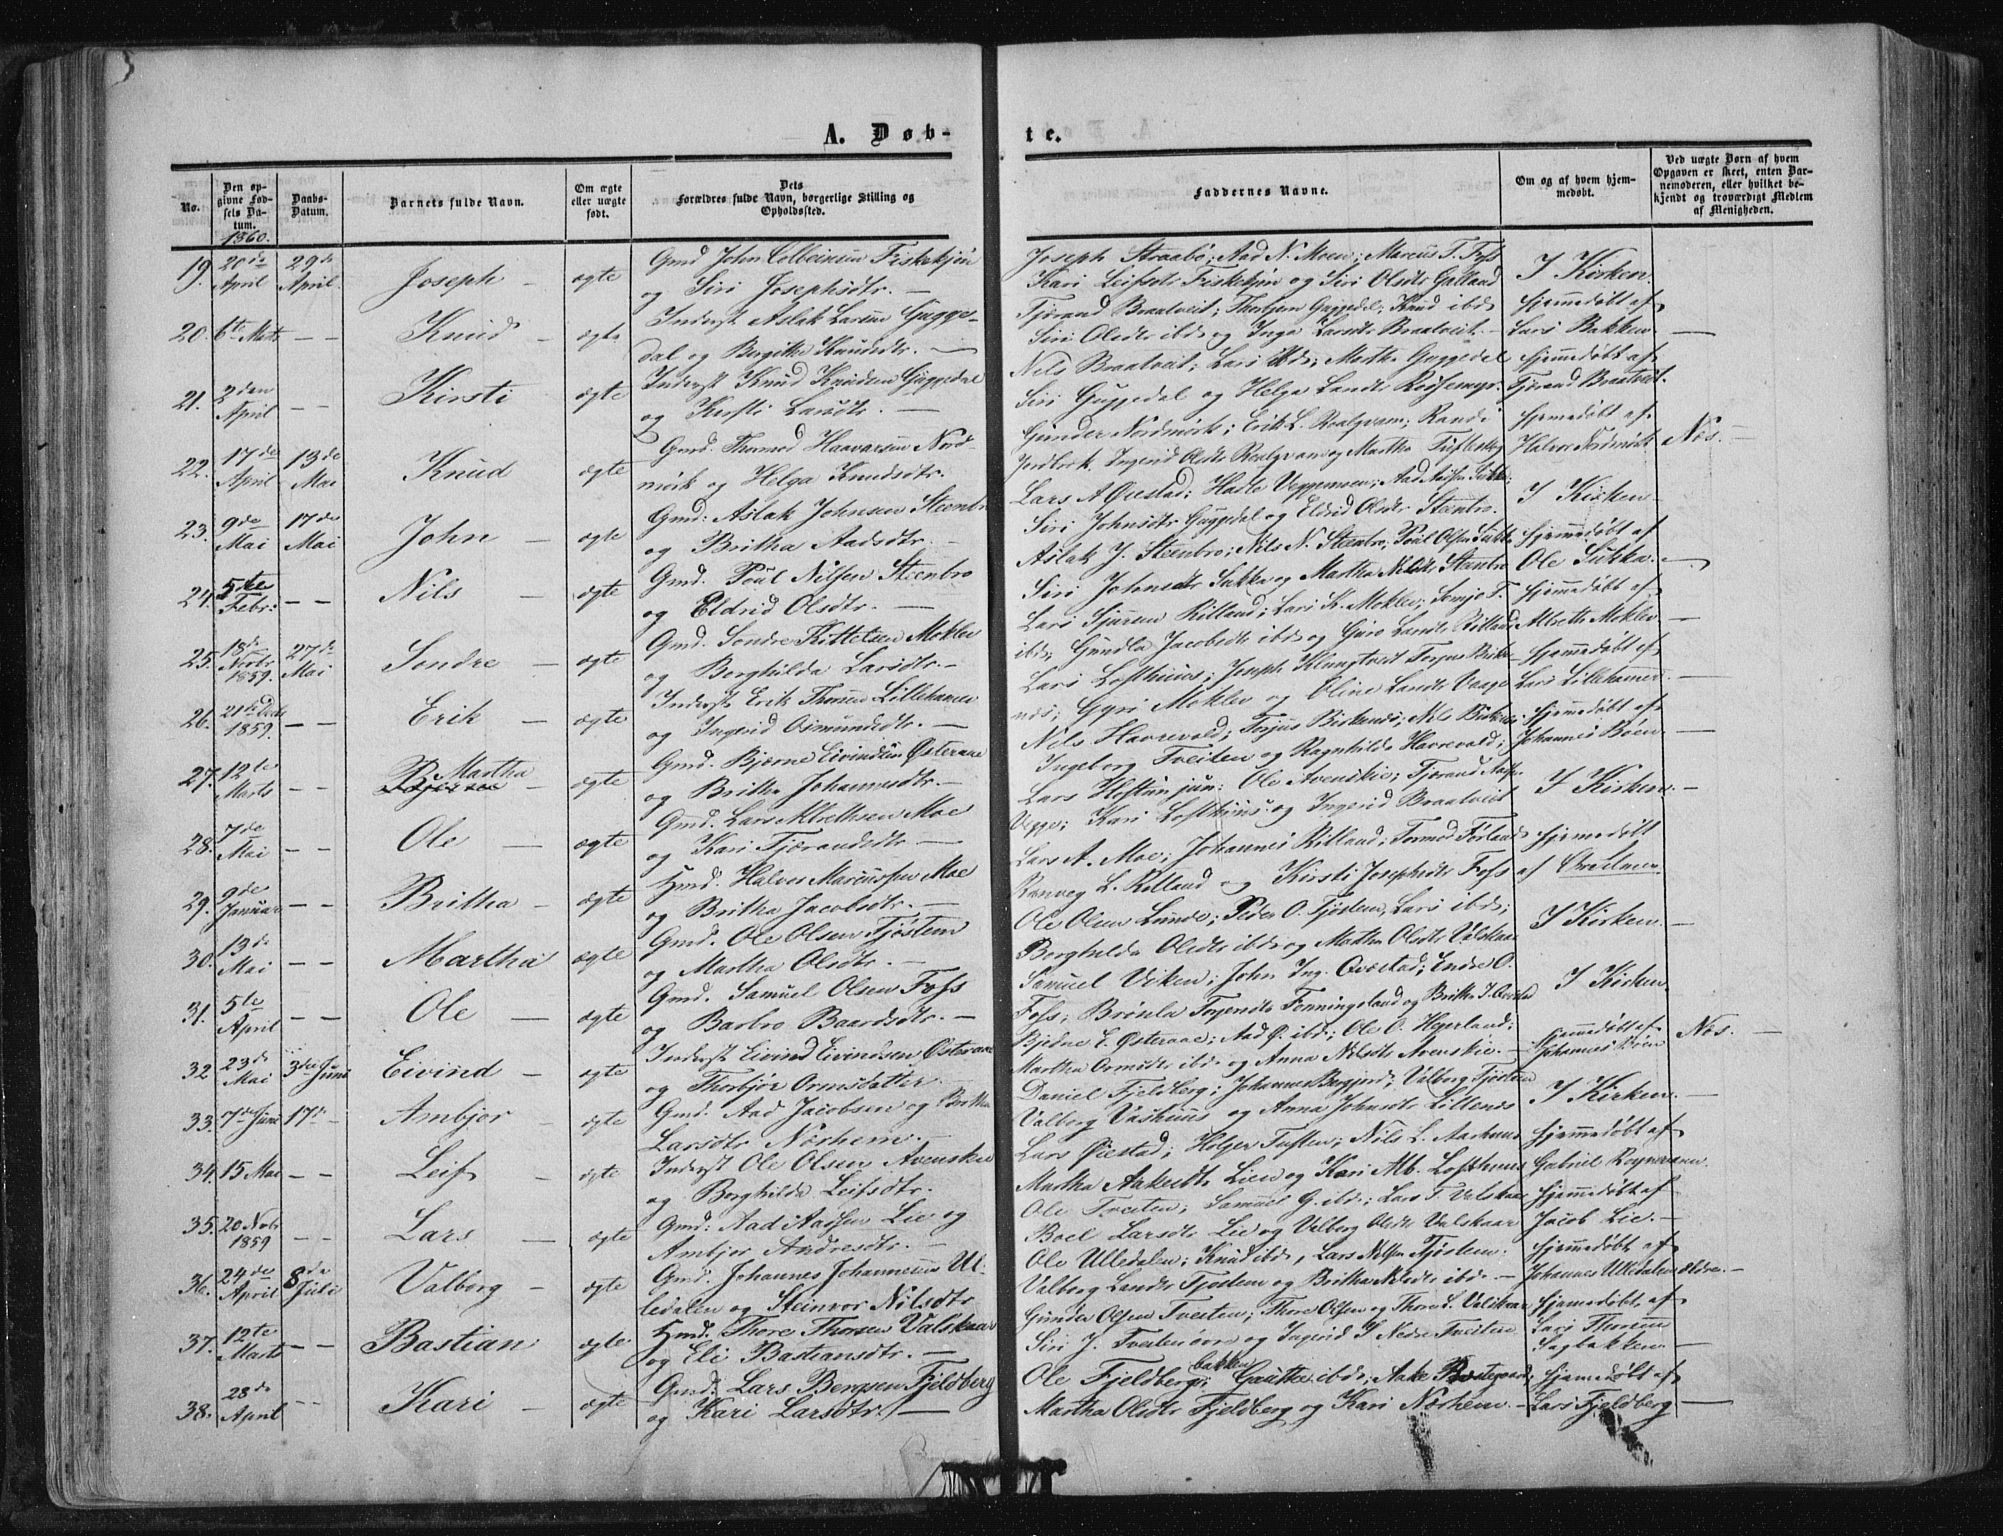 A. Døb-
te.
No.
Den opgivne Fødsels Datum.
Daabs-Datum.
Barnets fulde Navn.
Om ægte eller uægte født.
Dets Forældres fulde Navn, borgerlige Stilling og Opholdssted.
Faddernes Navne.
Om og af hvem hjemmedøbt.
Ved uægte Børn af hvem Opgaven er skeet, enten Barnemoderen, eller hvilket bekjendt og troværdigt Medlem af Menigheden.
1860.
19. 20de April 29de April Joseph – ægte Gmd John Fiskekjøn
og Siri Josephsdtr. –
Joseph Straabø; Aad N. Moen; Marcus T. Foss
Kari Leifsdt Fiskekjøn og Siri Olsdtr Galland
I Kirken
20. 6te Marts – – Knud – ægte Inderst Aslak Larsen Gugge-
dal og Bergithe Knudsdtr. –
Tjærand Braatveit; Thorbjørn Guggedal; Knud ibd
Siri Olsdtr ibd og Inga Larsdtr Braatveit. –
Hjemmedøbt af
Lars Bakken –
21. 2den April – – Kirsti ægte Inderst Knud Knudsen Guggedal
og Kirsti Larsdtr. –
Nils Braatveit; Lars ibd; Martha Guggedal
Siri Guggedal og Helga Larsdtr
Hjemmedøbt af
Tjærand Braatveit.
22. 17de April 13de Mai Knud ægte Gmd. Thomod Haavarsen Nord-
mork og Helga Knudsdtr.
Gunder Nordmork; Erik L. Roalqvam; Randi
Jordbrek. Ingerid Olsdtr Roalqvam og Martha
Hjemmedøbt af
Halvor Nordmork Nos. –
23. 9de Mai 17de Mai John – ægte Gmd: Aslak Johnsen Steenbro
og Britha Aadsdtr. –
Lars A Qvestad; Hadle Veggemoen; Aad
Siri Johnsdtr Guggedal og Eldrid Olsdtr Steenbro.
I Kirken –
24. 5te Febr: – – Nils – ægte Gmd. Poul Nilsen Steenbro
og Eldrid Olsdtr. –
Aslak J. Steenbro; Nils N. Steenbro; Poul Olsen Sukka
Siri Johnsdtr Sukka og Martha Nilsdtr Steenbro
Hjemmedøbt af
Ole Sukka. –
25. 18de Novbr 1859. 27de Mai Sondre – ægte Gmd. Sondre Kittelsen Moklev
og Borghilda Larsdtr. –
Lars Sjursen Rilland; Lars K. Moklev;
ibd; Gundla Jacobsdtr ibd og Guro Larsdtr Rilland
Hjemmedøbt af
Albreth Moklev –
26. 21de Decbr 1859. – – Erik – ægte Inderst Erik Thorsen Lillehamer
og Ingerid Osmundsdtr. –
Lars Lofthuus; Joseph Klungtveit Torjus Birke-
nes; Gyri Moklev og Oline Larsdtr Vaage
Hjemmedøbt af
Lars Lillehamer. –
27. 12te Marts – – Martha – ægte Gmd. Bjærne Eivindsen Østeraae
og Britha Johannesdtr. –
Nils Havrevold; Torjus Birkenes; Nils Birkenes
Ingeborg Tveiten og Ragnhilda Havrevold;
Hjemmedøbt af
Johannes Bøen –
28. 7de Mai – – Ole – ægte Gmd. Lars Albrethsen Moe
og Kari Tjærandsdtr –
Lars Hoftun jun: Ole Avenskie; Tjærand
Vegge; Kari Lofthuus og Ingerid Braatveit
I Kirken. –
29. 9de Januar – – Britha – ægte Hmd. Halvor Marcussen Moe
og Britha Jacobsdtr. –
Lars A. Moe; Johannes Rilland; Tormod Førland
Ranveg L. Rilland og Kirsti Josephsdtr Foss
Hjemmedøbt
af
30. 13de Mai – – Martha ægte Gmd. Ole Olsen Tjøstem
og Martha Olsdtr. –
Ole Olsen Lunde; Peder O. Tjøstem, Lars ibd;
Borghilda Olsdtr ibd og Martha Olsdtr Valskaar
I Kirken –
31. 5te April – – Ole – ægte Gmd. Samuel Olsen Foss
og Barbro Baardsdtr. –
Samuel Viken; John Ing. Qvestad; Endre O.
Foss; Brønla Fenningsland og Britha J. Qvestad
I Kirken
32 23de Mai 3die Juni Eivind – ægte Inderst Eivind Eivindsen Østeraae
og Thorbjør Ormsdatter.
Bjødne E. Østeraae; Aad Ø. ibd; Ole O. Hegerland;
Martha Ormsdtr ibd og Anna Nilsdtr Avenskie. –
Hjemmedøbt af
Johannes Bøen Nos. –
33. 7de Juni 17de – Ambjor – ægte Gmd. Aad Jacobsen og Britha
Larsdtr Nørhem. –
Daniel Fjeldberg; Johannes Berge; Valborg Tjøstem
Valborg Vashuus og Anna Johnsdtr Lillenes
I Kirken. –
34. 15 Mai – – Leif – ægte Inderst Ole Olsen Avenskie
og Borghilda Leifsdtr.
Lars Øiestad; Holger Tuften; Nils L. Aarhuus
Martha Aakesdtr Lien og Kari Alb. Lofthuus
Hjemmedøbt af
Gabriel
35. 20 Nobr 1859 – – Lars – ægte Gmd: Aad Aadsen Lie og
Ambjor Andresdtr. –
Ole Tveiten; Samuel G. ibd; Lars T. Valskaar
Boel Larsdtr Lie og Valborg Olsdtr Valskaar
Hjemmedøbt af
Jacob Lie. –
36. 24de April 8de Juli Valborg – ægte Gmd. Johannes Johannesen Ul-
ledalen og Steinvor Nilsdtr
Ole Ulledalen; Knud ibd, Lars Nilsen Tjøstem.
Valborg Larsdtr Tjøstem og Britha Nilsdtr ibd. –
Hjemmedøbt af
Johannes Ulledalen ældre. –
37. 12te Marts – – Bastian ægte Hmd. Thore Thorsen Valskaar
og Eli Bastiansdtr. –
Gunder Olsen Tveiten; Thore Olsen og Thore L. Valskaar
Siri J. Tveiten øvre og Ingerid S Nedre Tveiten
Hjemmedøbt af
Lars Thorsen
Sagbakken –
38. 28de April – – Kari – ægte Gmd: Lars Bergsen Fjeldberg
og Kari Larsdtr. –
Ole Fjeldberg; bakken Gautta ibd; Aake
Martha Olsdtr Fjeldberg og Kari Nørhem. –
Hjemmedøbt af
Lars Fjeldberg –